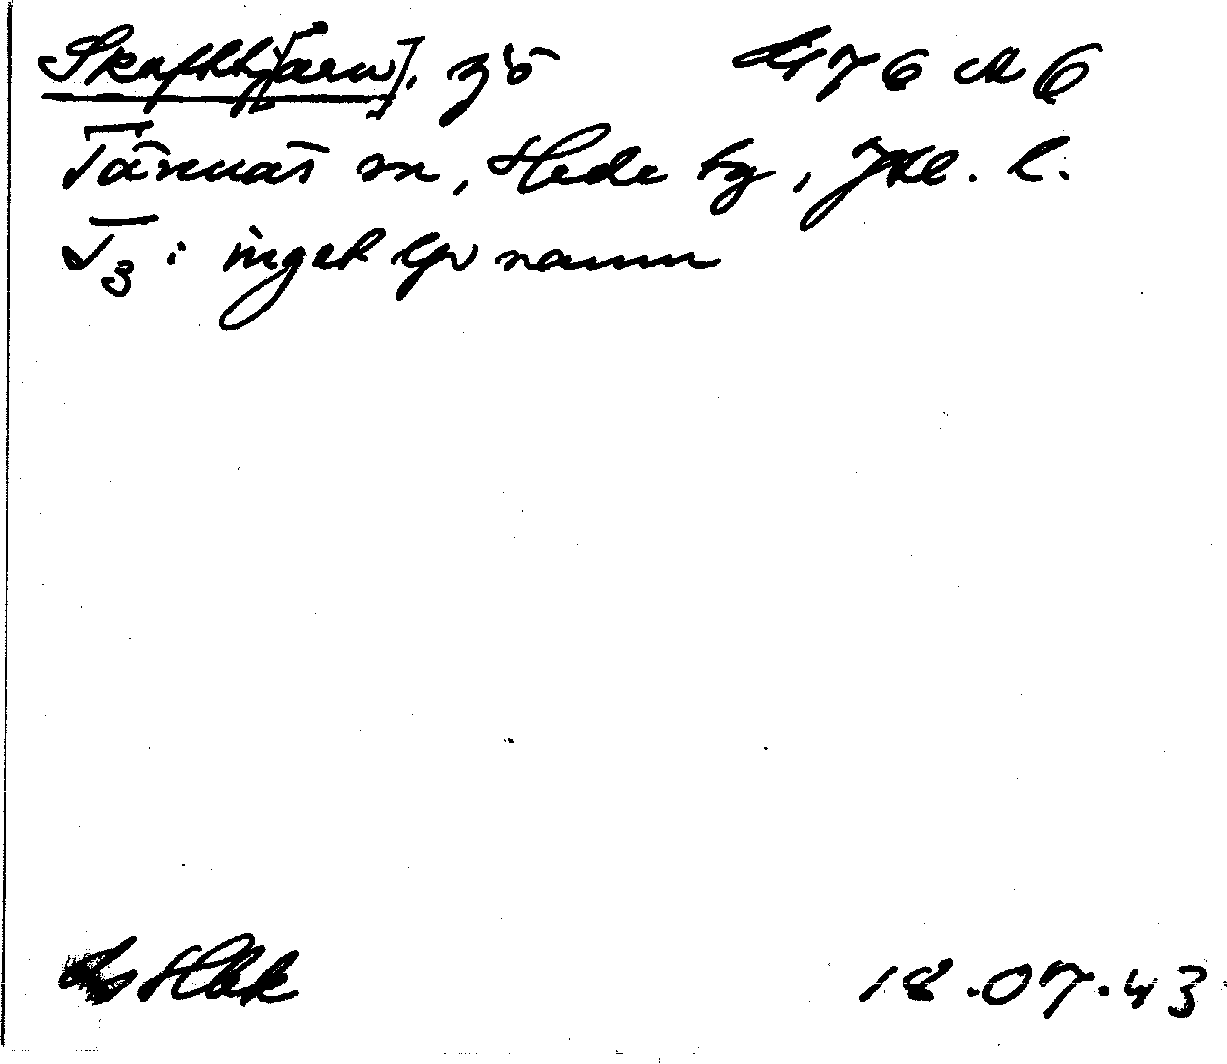 Skafttj[ärn], sjö 476 M 6
Tännäs sn, Hede tg, Jtl. l.
T3: inget lp namn
18.07.43